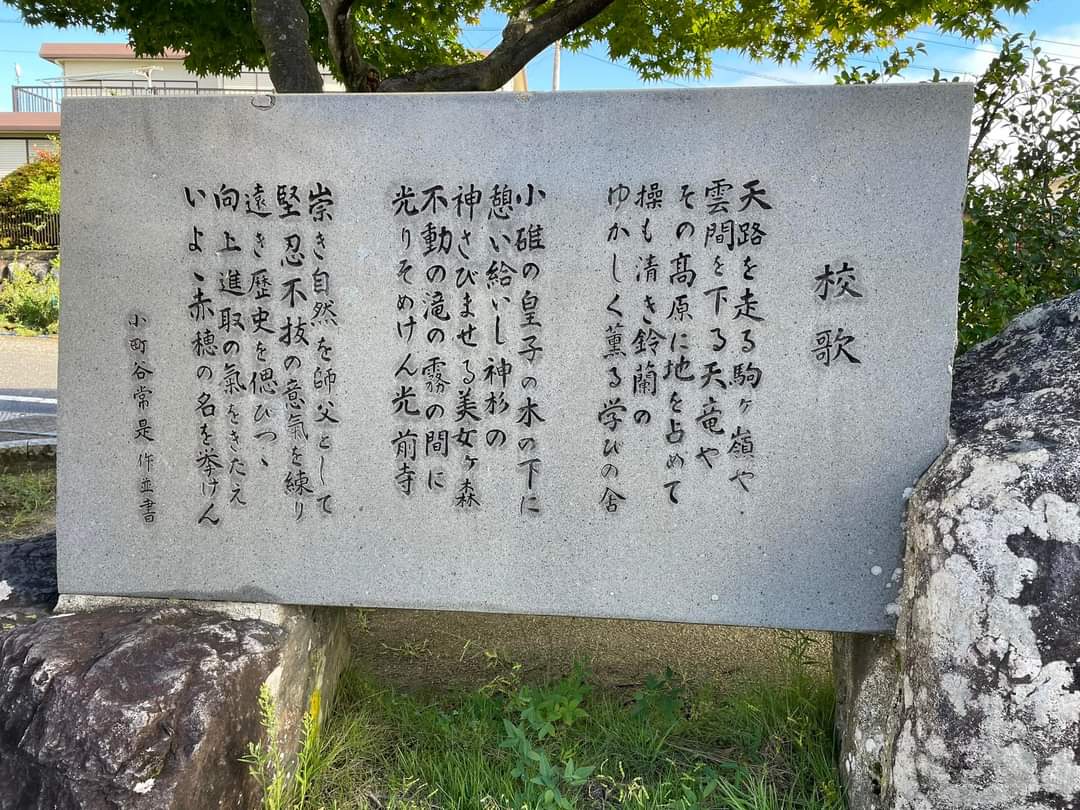 校歌
天路を走る駒ヶ嶺や
雲間を下る天竜や
その髙原に地を占めて
操も清き鈴蘭の
ゆかしく薫る学びの舍
小碓の皇子の木の下に
憩い給いし神杉の
神さびませる美女ヶ森
不動の滝の霧の間に
光りそめけん光前寺
崇き自然を師父として
堅忍不抜の意氣を練り
遠き歷史を偲ひつゝ
向上進取の氣をきたえ
いよゝ赤穂の名を挙けん
小町谷常是作並書